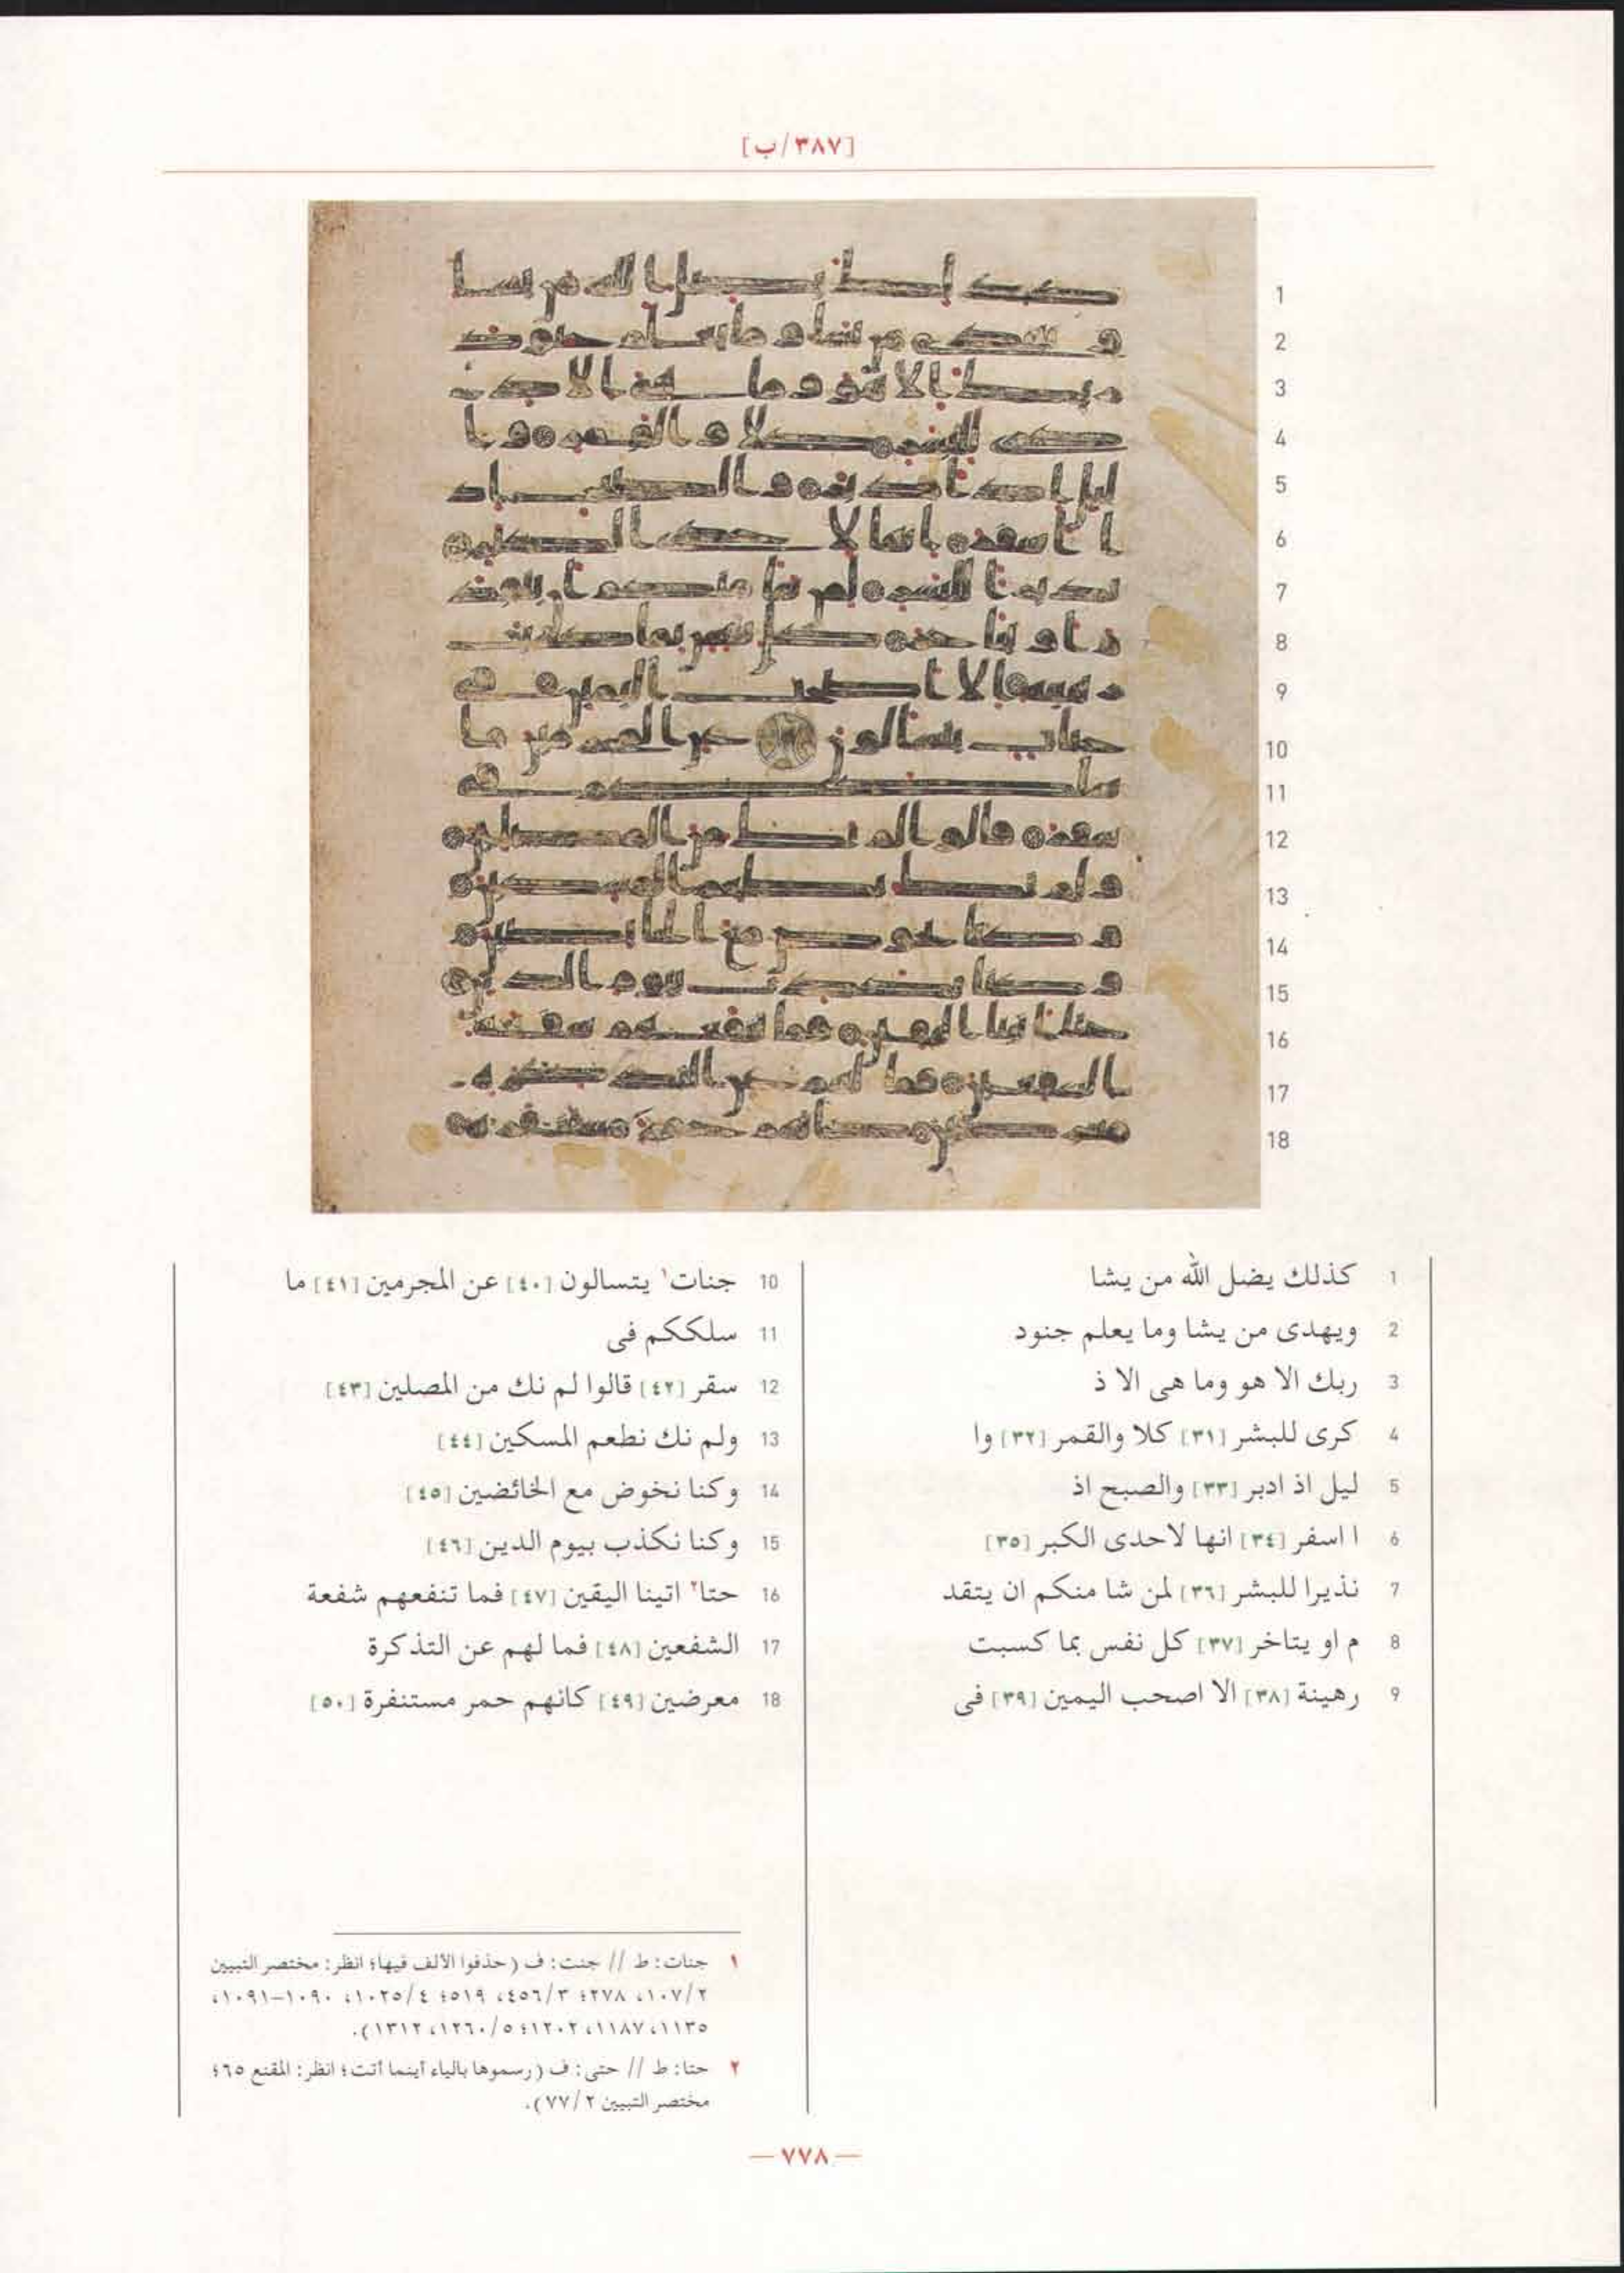 [٣٨٧/ب]
1 كذلك يضل الله من يشا
2 ويهدى من يشا وما يعلم جنود
3 ربك الا هو وما هى الا ذ
4 كرى للبشر [٣١] كلا والقمر [٣٢] وا
5 ليل اذ ادبر [٣٣] والصبح اذ
6 ا اسفر [٣٤] انها لاحدى الكبر [٣٥]
7 نذيرا للبشر [٣٦] لمن شا منكم ان يتقد
8 م او يتاخر [٣٧] كل نفس بما كسبت
9 رهينة [٣٨] الا اصحب اليمين [٣٩] فى
10 جنات١ يتسالون [٤٠] عن المجرمين [٤١] ما
11 سلككم فى
12 سقر [٤٢] قالوا لم نك من المصلين [٤٣]
13 ولم نك نطعم المسكين [٤٤]
14 وكنا نخوض مع الخائضين [٤٥]
15 وكنا نكذب بيوم الدين [٤٦]
16 حتا٢ اتينا اليقين [٤٧] فما تنفعهم شفعة
17 الشفعين [٤٨] فما لهم عن التذكرة
18 معرضين [٤٩] كانهم حمر مستنفرة [٥٠]
١ جنات: ط // جنت: ف (حذفوا الألف فيها؛ انظر: مختصر التبيين
٢/١٠٧، ٢٧٨؛ ٣/٤٥٦، ٥١٩؛ ٤/١٠٢٥، ١٠٩٠-١٠٩١،
١١٣٥، ١١٨٧، ١٢٠٢؛ ٥/١٢٦٠، ١٣١٢).
٢ حتا: ط // حتى: ف (رسموها بالياء أينما أتت؛ انظر: المقنع ٦٥؛
مختصر التبيين ٢/٧٧).
— ٧٧٨ —